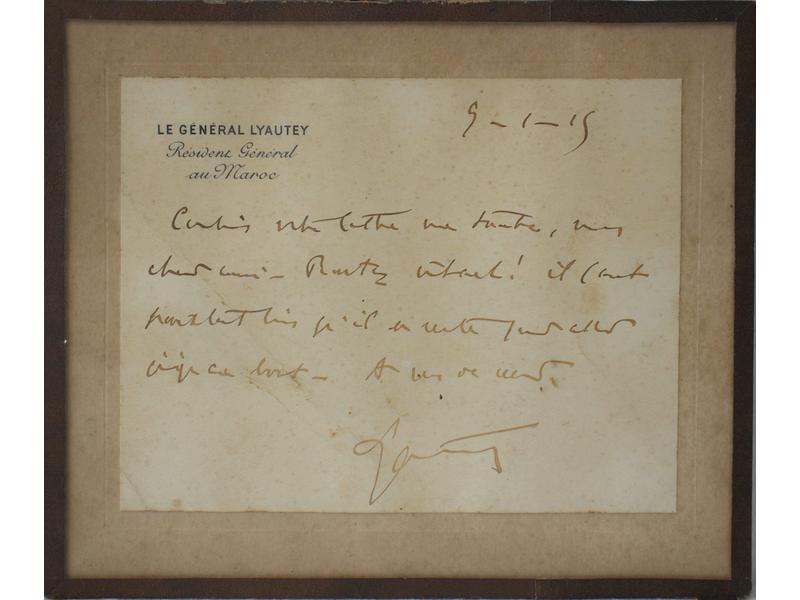 LE GÉNÉRAL LYAUTEY
Résident Général
au Maroc
9 - 1 - 15
Combien votre lettre me touche, mon
cher ami - Restez il faut
pourtant bien qu'il en reste pour aller
jusqu'au bout - A vous de cœur.
Lyautey